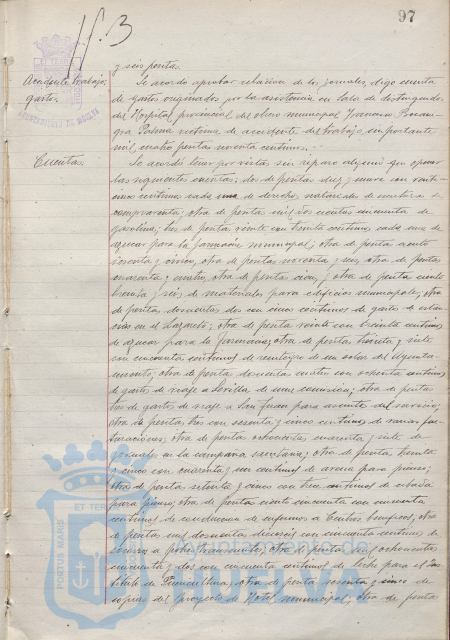 97
y seis pesetas.
Accidente trabajo; gastos.
Se acordó aprobar relación de los jornales, digo cuenta
de gastos originados por la asistencia en Sala de distinguidos
del Hospital provincial del obrero municipal Francisco
Palma víctima de accidente del trabajo, importante
mil cuatro pesetas noventa centimos.
Cuentas.
Se acordó tener por vistas sin reparo alguno que oponer
las siguientes cuentas: dos de pesetas diez y nueve con veinti-
cinco centimos cada una de derechos, matrices de
compraventa; otra de pesetas mil dos cientas cincuenta de
gasolina; tres de pesetas veinte con treinta centimos cada una de
azucar para la farmacia municipal; otra de pesetas ciento
sesenta y cinco, otra de pesetas noventa y seis, otra de pesetas
cuarenta y cuatro, otra de pesetas cien, y otra de pesetas ciento
treinta y seis de materiales para edificios municipales; otra
de pesetas doscientas dos con cinco centimos de gastos de
en el Lazareto; otra de pesetas veinte con treinta centimos
de azucar para la farmacia; otra de pesetas treinta y siete
con cincuenta centimos de reintegro de un solar del Ayunta-
miento; otra de pesetas doscientas cuatro con ochenta centimos
de gastos de viaje a Sevilla de una comisión; otra de pesetas
tres de gastos de viaje a San Juan para asuntos del servicio;
otra de pesetas tres con sesenta y cinco centimos de varias
otra de pesetas ochocientas cuarenta y siete de
jornales en la campaña sanitaria; otra de pesetas treinta
y cinco con cuarenta y un centimos de avena para pienso;
otra de pesetas setenta y cinco con tres centimos de cebada
para pienso; otra de pesetas ciento cincuenta con cincuenta
centimos de conducción de enfermos a Centros beneficos; otra
de pesetas mil doscientas dieciseis con cincuenta centimos de
socorros a pobres transeuntes; otra de pesetas mil ochocientas
cincuenta y dos con cincuenta centimos de leche para el Ins-
tituto de Puericultura; otra de pesetas sesenta y cinco de
copias del proyecto de Hotel municipal; otra de pesetas
ET TER
PORTUS MARIS